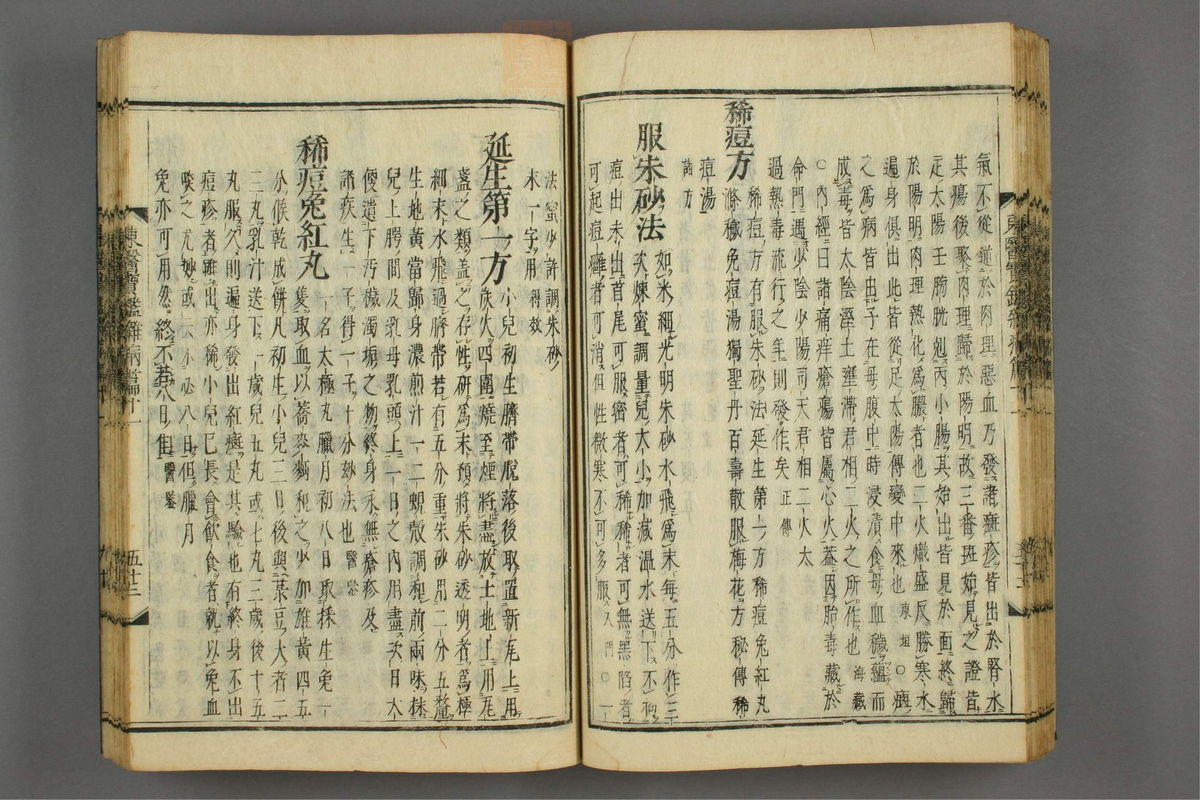 氣不從逆於肉理惡血乃發諸癍疹皆出於腎水
其瘍後聚肉理歸於陽明故三番斑始見之證皆
足太陽壬膀胱剋丙小腸其始出皆見於面終歸
於陽明肉理熱化爲膿者也二火熾盛反勝寒水
遍身俱出此皆從足太陽傳變中來也東垣○癍
之爲病皆由子在母腹中時浸漬食母血穢蘊而
成毒皆太陰濕土壅滯君相二火之所作也海藏
○內經曰諸痛痒瘡瘍皆屬心火蓋因胎毒藏於
命門遇少陰少陽司天君相二火太
過熱毒流行之年則發作矣正傳
稀痘方 稀痘方有服朱砂法延生第一方稀痘兔紅丸
滌穢免痘湯獨聖丹百壽散服梅花方秘傳稀
痘湯
諸方
服朱砂法 如米細光明朱砂水飛爲末每五分作三
次煉蜜調量兒大小加減温水送下不拘
痘出未出首尾可服密者可稀稀者可無黑陷者
可起痘癰者可消但性微寒不可多服入門○一
法蜜少許調朱砂
末一字用得效
延生第一方 小兒初生臍帶脫落後取置新瓦上用
炭火四圍燒至煙將盡放土地上用瓦
盞之類蓋之存性研爲末預將朱砂透明者爲極
細末水飛過臍帶若有五分重朱砂用二分五釐
生地黃當歸身濃煎汁一二蜆殼調和前兩味抹
兒上腭間及乳母乳頭上一日之內用盡次日大
便遺下污穢濁垢之物終身永無瘡疹及
諸疾生一子得一子十分玅法也醫鑒
稀痘兔紅丸 一名太極丸臘月初八日取採生兔一
隻取血以蕎麥麪和之少加雄黃四五
分候乾成餠凡初生小兒三日後與菉豆大者二
三丸乳汁送下一歲兒五丸或七丸三歲後十五
丸服久則遍身發出紅癍是其驗也有終身不出
痘疹者雖出亦稀小兒已長會飮食者就以兔血
啖之尤妙或云不必八日但臘月
兔亦可用然終不若八日佳醫鑒
東醫寶鑑雜病篇十一
五十三